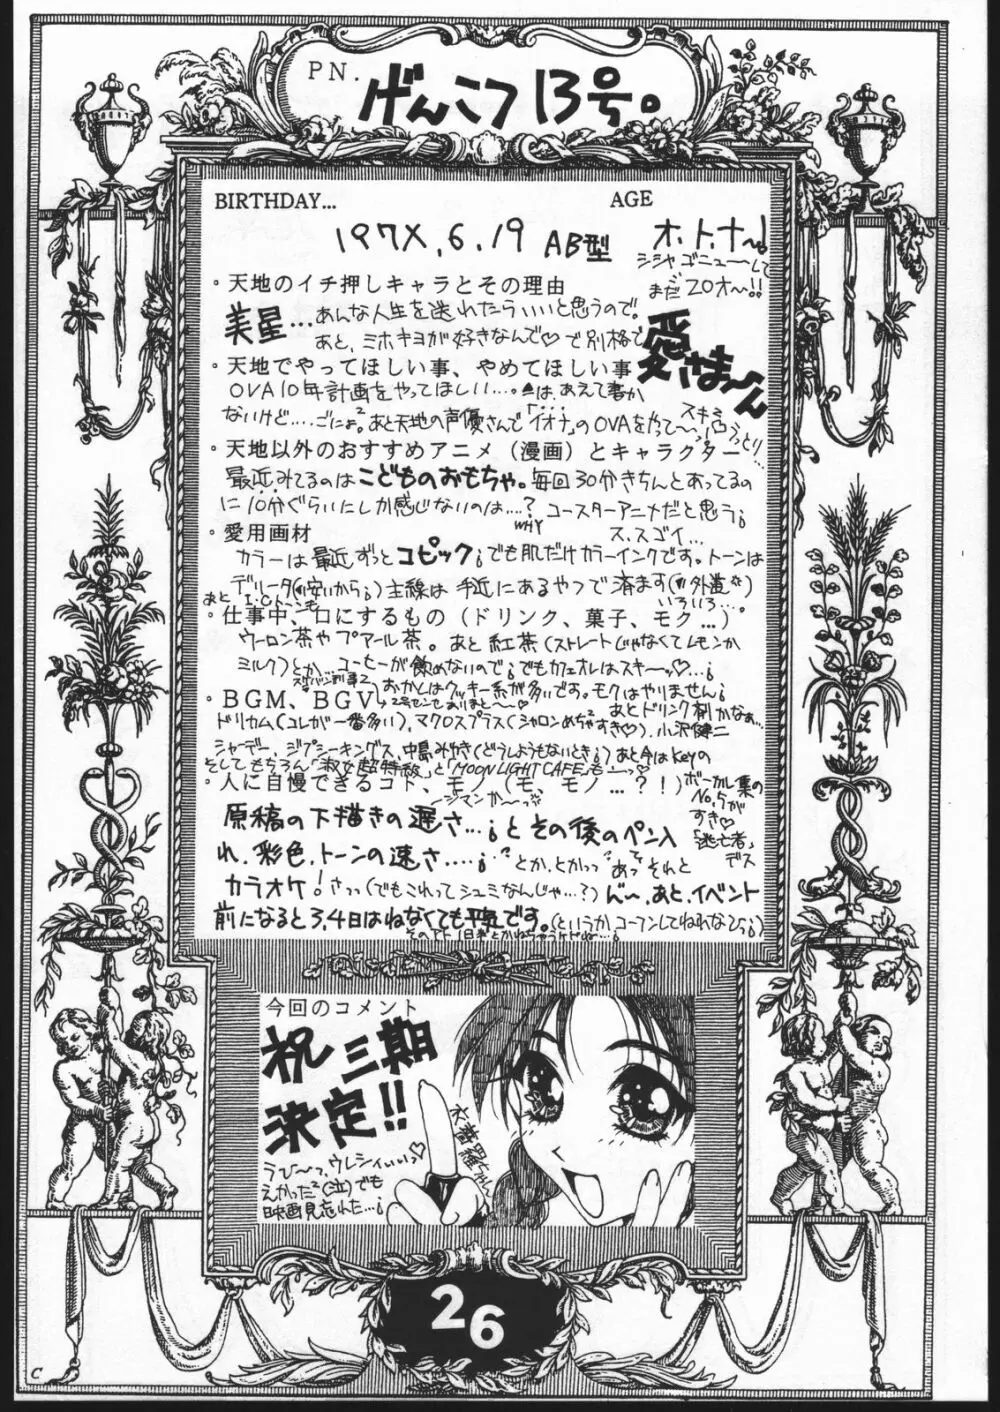 PN. げんこつ13号。
BIRTHDAY... AGE
197X.6.19 AB型 オ.ト.ナ〜!
シシャゴニューして
まだ20才〜!!
・天地のイチ押しキャラとその理由
美星…あんな人生を送れたらいいと思うので。
あと、ミホキヨが好きなんで♡で別格で
愛さま〜ん
・天地でやってほしい事、やめてほしい事
OVA10年計画をやってほしい…。は、あえて書か
ないけど…ごにょ²あと天地の声優さんで「イオナ」のOVAをやって〜
・天地以外のおすすめアニメ（漫画）とキャラクター
最近みてるのはこどものおもちゃ。毎回30分きちんとあってるの
に10分ぐらいにしか感じないのは…?コースターアニメだと思う¡
WHY ス、スゴイ…
・愛用画材
カラーは最近ずっとコピック¡でも肌だけカラーインクです。トーンは
デリータ(安いから¡)主線は手近にあるやつで済ます(外道)
あとI.Cトーンも いろいろ…。
・仕事中、口にするもの（ドリンク、菓子、モク…）
ウーロン茶やプアール茶。あと紅茶(ストレートじゃなくてレモンか
ミルク)とか…コーヒーが飲めないので¡でもカフェオレはスキ〜ッ♡…¡
おかしはクッキー系が多いです。モクはやりません¡
・BGM、BGV あとドリンク剤かなぁ…
ドリカム(コレが一番多い)、マクロスプラス(シャロンめちゃ²すき♡)、小沢健二
シャーデー、ジプシーキングス、中島みゆき(どうしようもないとき¡)あと今はkeyの
そしてもちろん「淑女超特急」と「MOON LIGHT CAFE」も〜っ♡
ボーカル集の
No.5が
すき♡
「逃亡者」
デス
・人に自慢できるコト、モノ（モ、モノ…?!）
ジマンか〜っ
原稿の下描きの遅さ…¡とその後のペン入
れ、彩色、トーンの速さ…¡とか、とかっっあっ²それと
カラオケ!さっっ(でもこれってシュミなんじゃ…?)ど〜、あと、イベント
前になると3,4日はねなくても平気です。(というかコーフンしてねれない¡)
今回のコメント
祝三期
決定!!
うひ〜っ、ウレシィいいっ♡
えかった²(泣)でも
映画見忘れた…¡
26
C